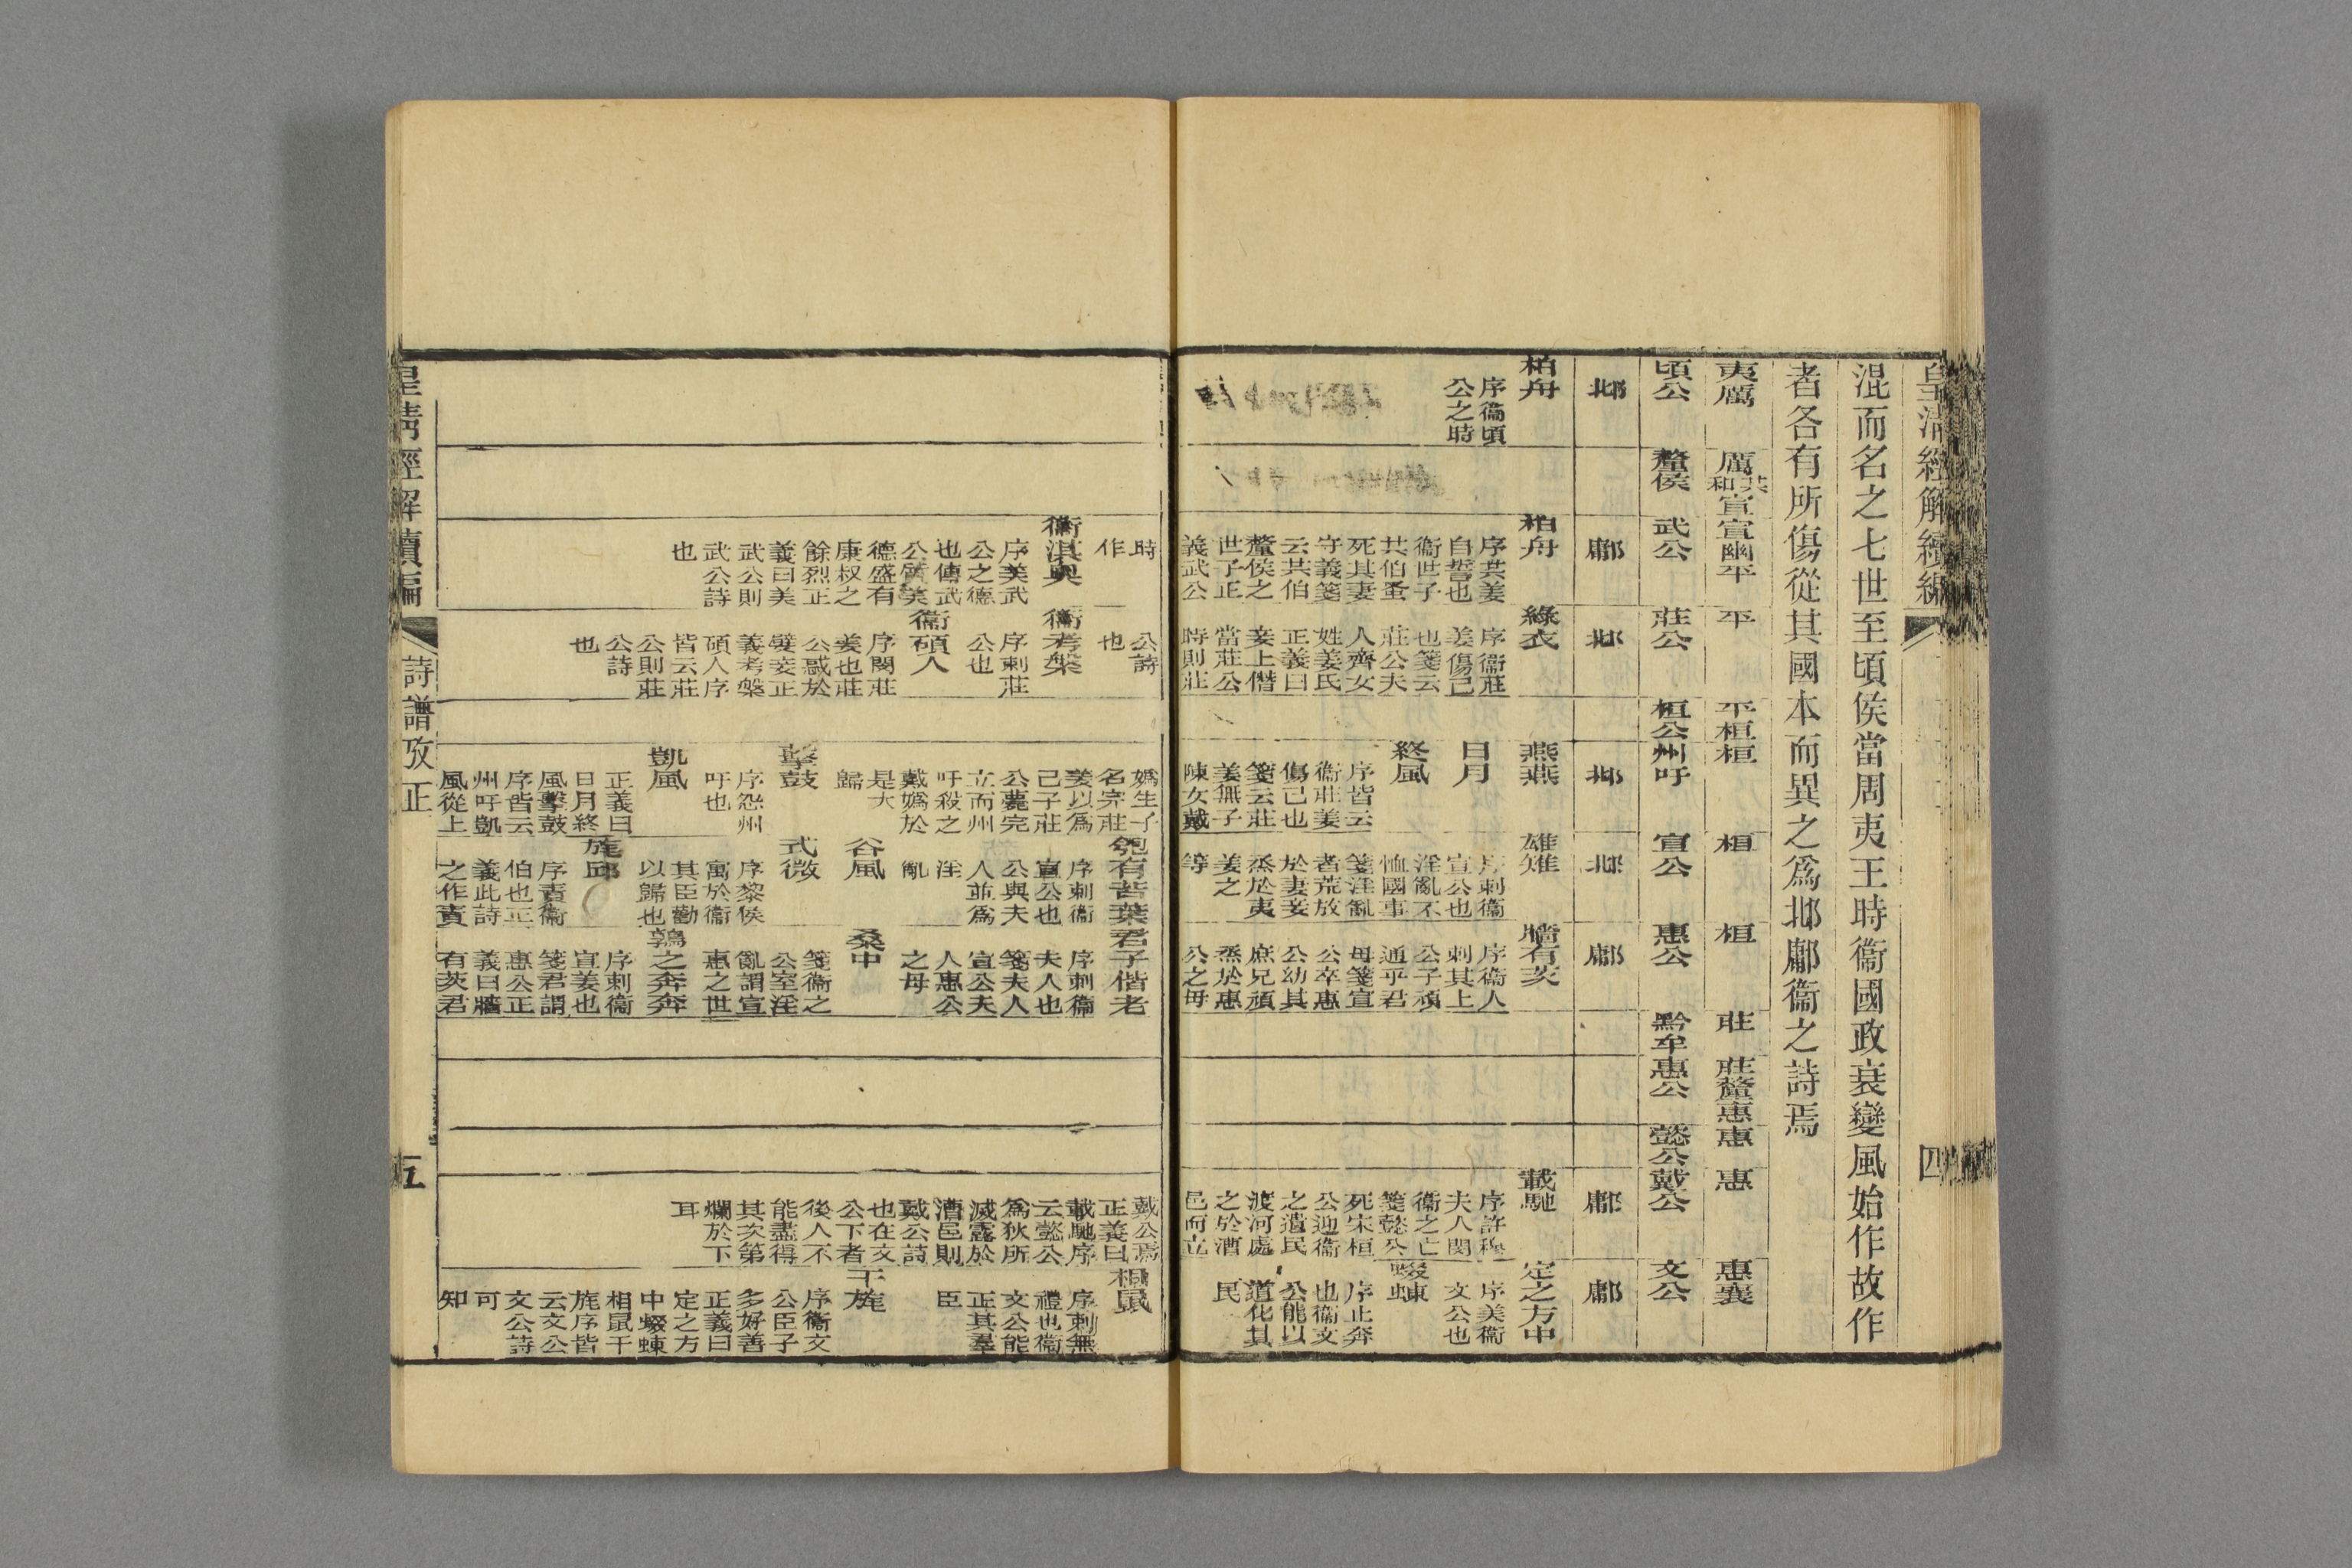 皇清經解續編 四
混而名之七世至頃侯當周夷王時衞國政衰變風始作故作
者各有所傷從其國本而異之爲邶鄘衞之詩焉
夷厲 厲共和宣 宣幽平 平 平桓 桓 桓 桓 莊 莊釐惠 惠 惠 惠襄
頃公 釐侯 武公 莊公 桓公 州吁 宣公 惠公 黔牟 惠公 懿公 戴公 文公
邶 鄘 邶 邶 邶 鄘 鄘 鄘
柏舟
序衞頃
公之時
柏舟
序共姜
自誓也
衞世子
共伯蚤
死其妻
守義箋
云共伯
釐侯之
世子正
義武公
綠衣
序衞莊
姜傷己
也箋云
莊公夫
人齊女
姓姜氏
正義曰
妾上僭
當莊公
時則莊
燕燕
日月
終風
序皆云
衞莊姜
傷己也
箋云莊
姜無子
陳女戴
雄雉
序刺衞
宣公也
淫亂不
恤國事
箋淫亂
者荒放
於妻妾
烝於夷
姜之
等
牆有茨
序衞人
刺其上
公子頑
通乎君
母箋宣
公卒惠
公幼其
庶兄頑
烝於惠
公之母
載馳
序許穆
夫人閔
衞之亡
箋懿公
死宋桓
公迎衞
之遺民
渡河處
之於漕
邑而立
定之方中
序美衞
文公也
蝃蝀
序止奔
也衞文
公能以
道化其
民
時
作
衞淇奧
序美武
公之德
也傳武
公質美
德盛有
康叔之
餘烈正
義曰美
武公則
武公詩
也
公詩
也
衞考槃
序刺莊
公也
衞碩人
序閔莊
姜也莊
公惑於
嬖妾正
義考槃
碩人序
皆云莊
公則莊
公詩
也
嬀生子
名完莊
姜以爲
己子莊
公薨完
立而州
吁殺之
戴嬀於
是大
歸
擊鼓
序怨州
吁也
凱風
正義曰
日月終
風擊鼓
序皆云
州吁凱
風從上
匏有苦葉
序刺衞
宣公也
公與夫
人並爲
淫
亂
谷風
式微
序黎侯
寓於衞
其臣勸
以歸也
旄邱
序責衞
伯也正
義此詩
之作責
君子偕老
序刺衞
夫人也
箋夫人
宣公夫
人惠公
之母
桑中
箋衞之
公室淫
亂謂宣
惠之世
鶉之奔奔
序刺衞
宣姜也
箋君謂
惠公正
義曰牆
有茨君
戴公焉
正義曰
載馳序
云懿公
爲狄所
滅露於
漕邑則
戴公詩
也在文
公下者
後人不
能盡得
其次第
爛於下
耳
相鼠
序刺無
禮也衞
文公能
正其羣
臣
干旄
序衞文
公臣子
多好善
正義曰
定之方
中蝃蝀
相鼠干
旄序皆
云文公
文公詩
可
知
皇清經解續編 詩譜攷正 五